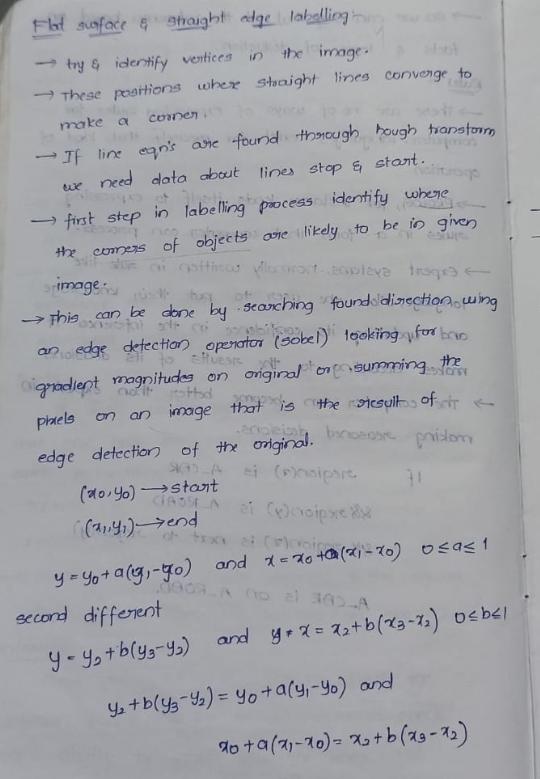 Flat surface & straight edge labelling
→ try & identify vertices in the image.
→ These positions where straight lines converge to
make a corner.
→ If line eqn's are found through hough transform
we need data about lines stop & start.
→ first step in labelling process identify where
the corners of objects are likely to be in given
image.
→ This can be done by searching found direction using
an edge detection operator (sobel) looking for
gradient magnitudes on original or summing the
pixels on an image that is the result of
edge detection of the original.
(x0, y0) → start
(x1, y1) → end
y = y0 + a(y1 - y0) and x = x0 + a(x1 - x0) 0 ≤ a ≤ 1
second different
y = y2 + b(y3 - y2) and x = x2 + b(x3 - x2) 0 ≤ b ≤ 1
y2 + b(y3 - y2) = y0 + a(y1 - y0) and
x0 + a(x1 - x0) = x2 + b(x3 - x2)